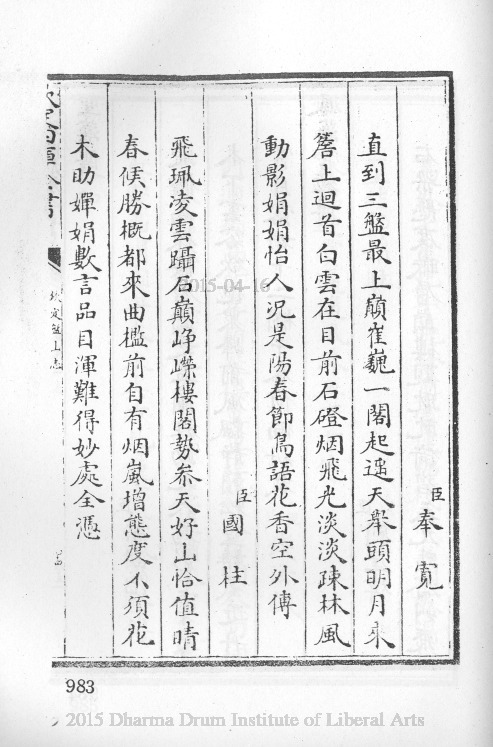 臣奉寬
直到三盤最上巔崔巍一閣起遥天舉頭明月來
簷上迴首白雲在目前石磴烟飛光淡淡疎林風
動影娟娟怡人况是陽春節鳥語花香空外傳
臣國柱
飛珮凌雲躡石巔崢嶸樓閣勢叅天好山恰值晴
春候勝概都來曲檻前自有烟嵐增態度不須花
木助嬋娟數言品目渾難得妙處全憑
欽定盤山志
983
2015-04-16
2015 Dharma Drum Institute of Liberal Arts